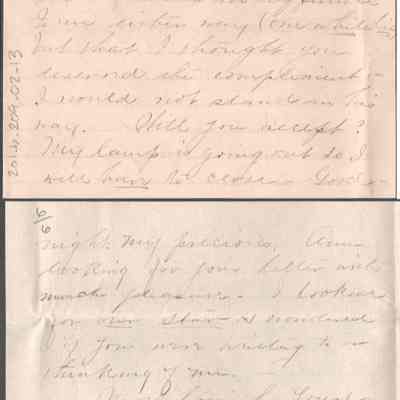 to me either way (one while
but that I thought you
deserved the compliment -
I would not stand in his
way. Will you accept?
My lamp is going out so I
will have to close. Good-
2014.209.02-13
6/6
night my precious, Am
looking for your letter with
much pleasure. I looked
for our star & wondered
if you were writing to or
thinking of me.